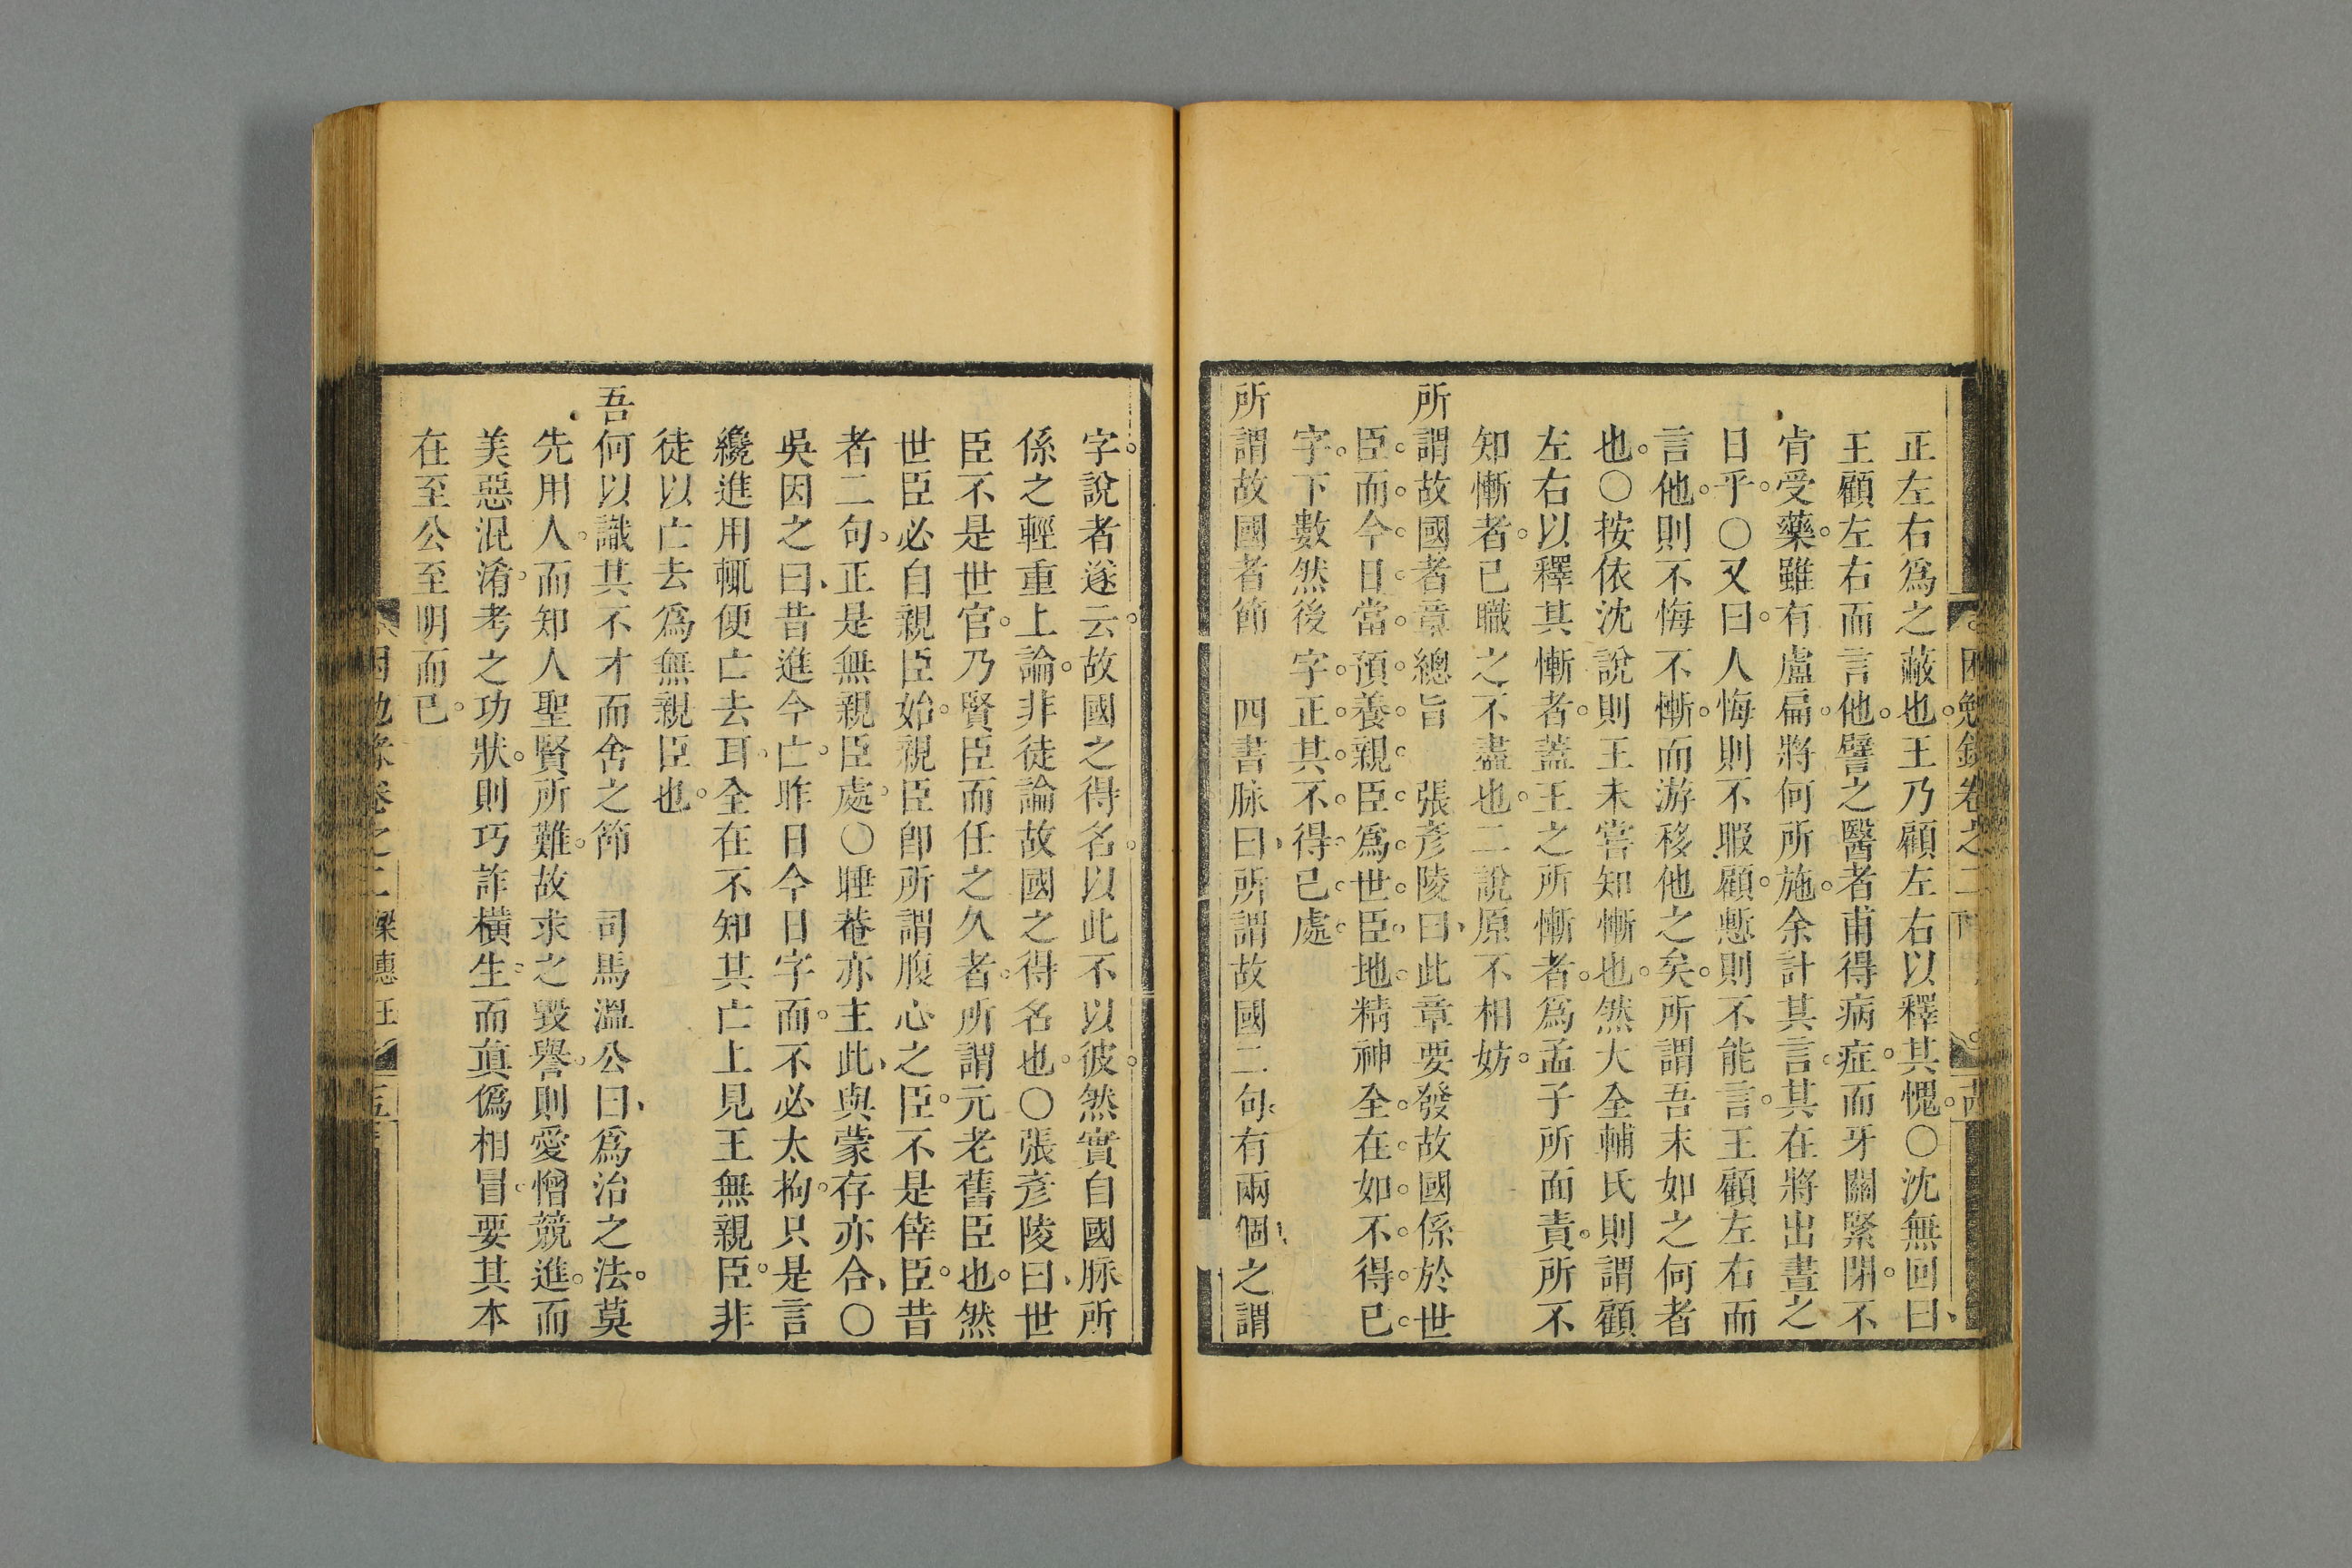 正左右爲之蔽也王乃顧左右以釋其愧○沈無回曰
王顧左右而言他譬之醫者甫得病症而牙關緊閉不
肯受藥雖有盧扁將何所施余計其言其在將出晝之
日乎○又曰人悔則不暇顧慙則不能言王顧左右而
言他則不悔不慚而游移他之矣所謂吾末如之何者
也○按依沈說則王未甞知慚也然大全輔氏則謂顧
左右以釋其慚者蓋王之所慚者爲孟子所面責所不
知慚者已職之不盡也二說原不相妨
所謂故國者章總旨　張彥陵曰此章要發故國係於世
臣而今日當預養親臣爲世臣地精神全在如不得已
字下數然後字正其不得已處
所謂故國者節　四書脉曰所謂故國二句有兩個之謂
字說者遂云故國之得名以此不以彼然實自國脉所
係之輕重上論非徒論故國之得名也○張彥陵曰世
臣不是世官乃賢臣而任之久者所謂元老舊臣也然
世臣必自親臣始親臣卽所謂腹心之臣不是倖臣昔
者二句正是無親臣處○睡菴亦主此與蒙存亦合○
吳因之曰昔進今亡昨日今日字面不必太拘只是言
纔進用輒便亡去耳全在不知其亡上見王無親臣非
徒以亡去爲無親臣也
吾何以識其不才而舍之節　司馬溫公曰爲治之法莫
先用人而知人聖賢所難故求之毀譽則愛憎競進而
美惡混淆考之功狀則巧詐橫生而眞僞相冒要其本
在至公至明而已